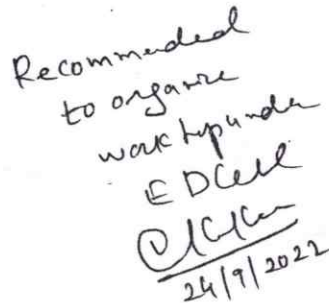 Recommended
to organize
workshop under
ED Cell
24/9/2022